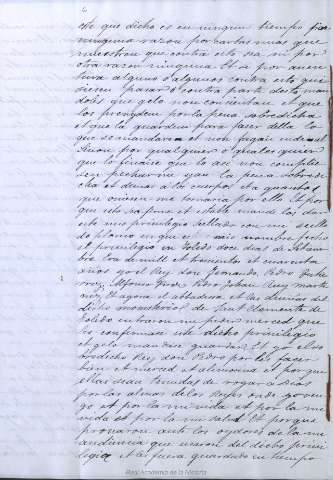 6
lo que dicho es en ningun tiempo por
ninguna razon por cartas mias que
muestren que contra esto sean nin por
otra razon ninguna Et si por aven-
tura alguno o algunos contra esto que
dicho es pasar o contra parte dello man-
doles que gelo non consientan et que
los prenden por la pena sobredicha
et que la guarden para faser della lo
que yo mandare et non fagan ende al
Sinon por qualquier o quales quier
que lo fincase que lo asi non compliese
pecharme yan la pena sobredi-
cha et demas a los cuerpos et a quanto
que oviesen me tornaria por ello Et por
que esto sea firme et estable mandeles dar
este mio privilegio sellado con mio sello
de plomo en que escrivi mio nombre Fecho
el privilegio en Toledo dose dias de Setiem-
bre Era de mill et tresientos et cuarenta
años yo el Rey don Fernando. Pedro
Alfonso Johan Ruy mart-
nes Et agora el abbadesa et las dueñas del
dicho monesterio de Sant Clemente de
Toledo enviaronme pedir merced que
les confirmase este dicho privilegio
et gelo mandase guardar Et yo el so-
bredicho Rey don Pedro por les faser
bien et merced et alimosna et porque
ellas sean tenudas de rogar a Dios
por las almas de los Reyes onde yo ven-
go et por la mi vida et por la mi
salud Et porque
provaron ante los oydores de la mi
audiencia que usaron del dicho privi-
legio et les fuera guardado en tiempo
Real Academia de la Historia